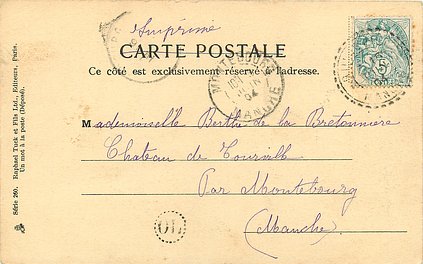 Imprimé
CARTE POSTALE
Ce côté est exclusivement réservé à l'adresse.
MONTEBOURG
04
MANCHE
Mademoiselle Berthe de la Bretonnière
Chateau de Tourville
Par Montebourg
(Manche)
OL
Série 260. Raphael Tuck et Fils Ltd., Editeurs, Paris.
Un mot à la poste (Déposé).